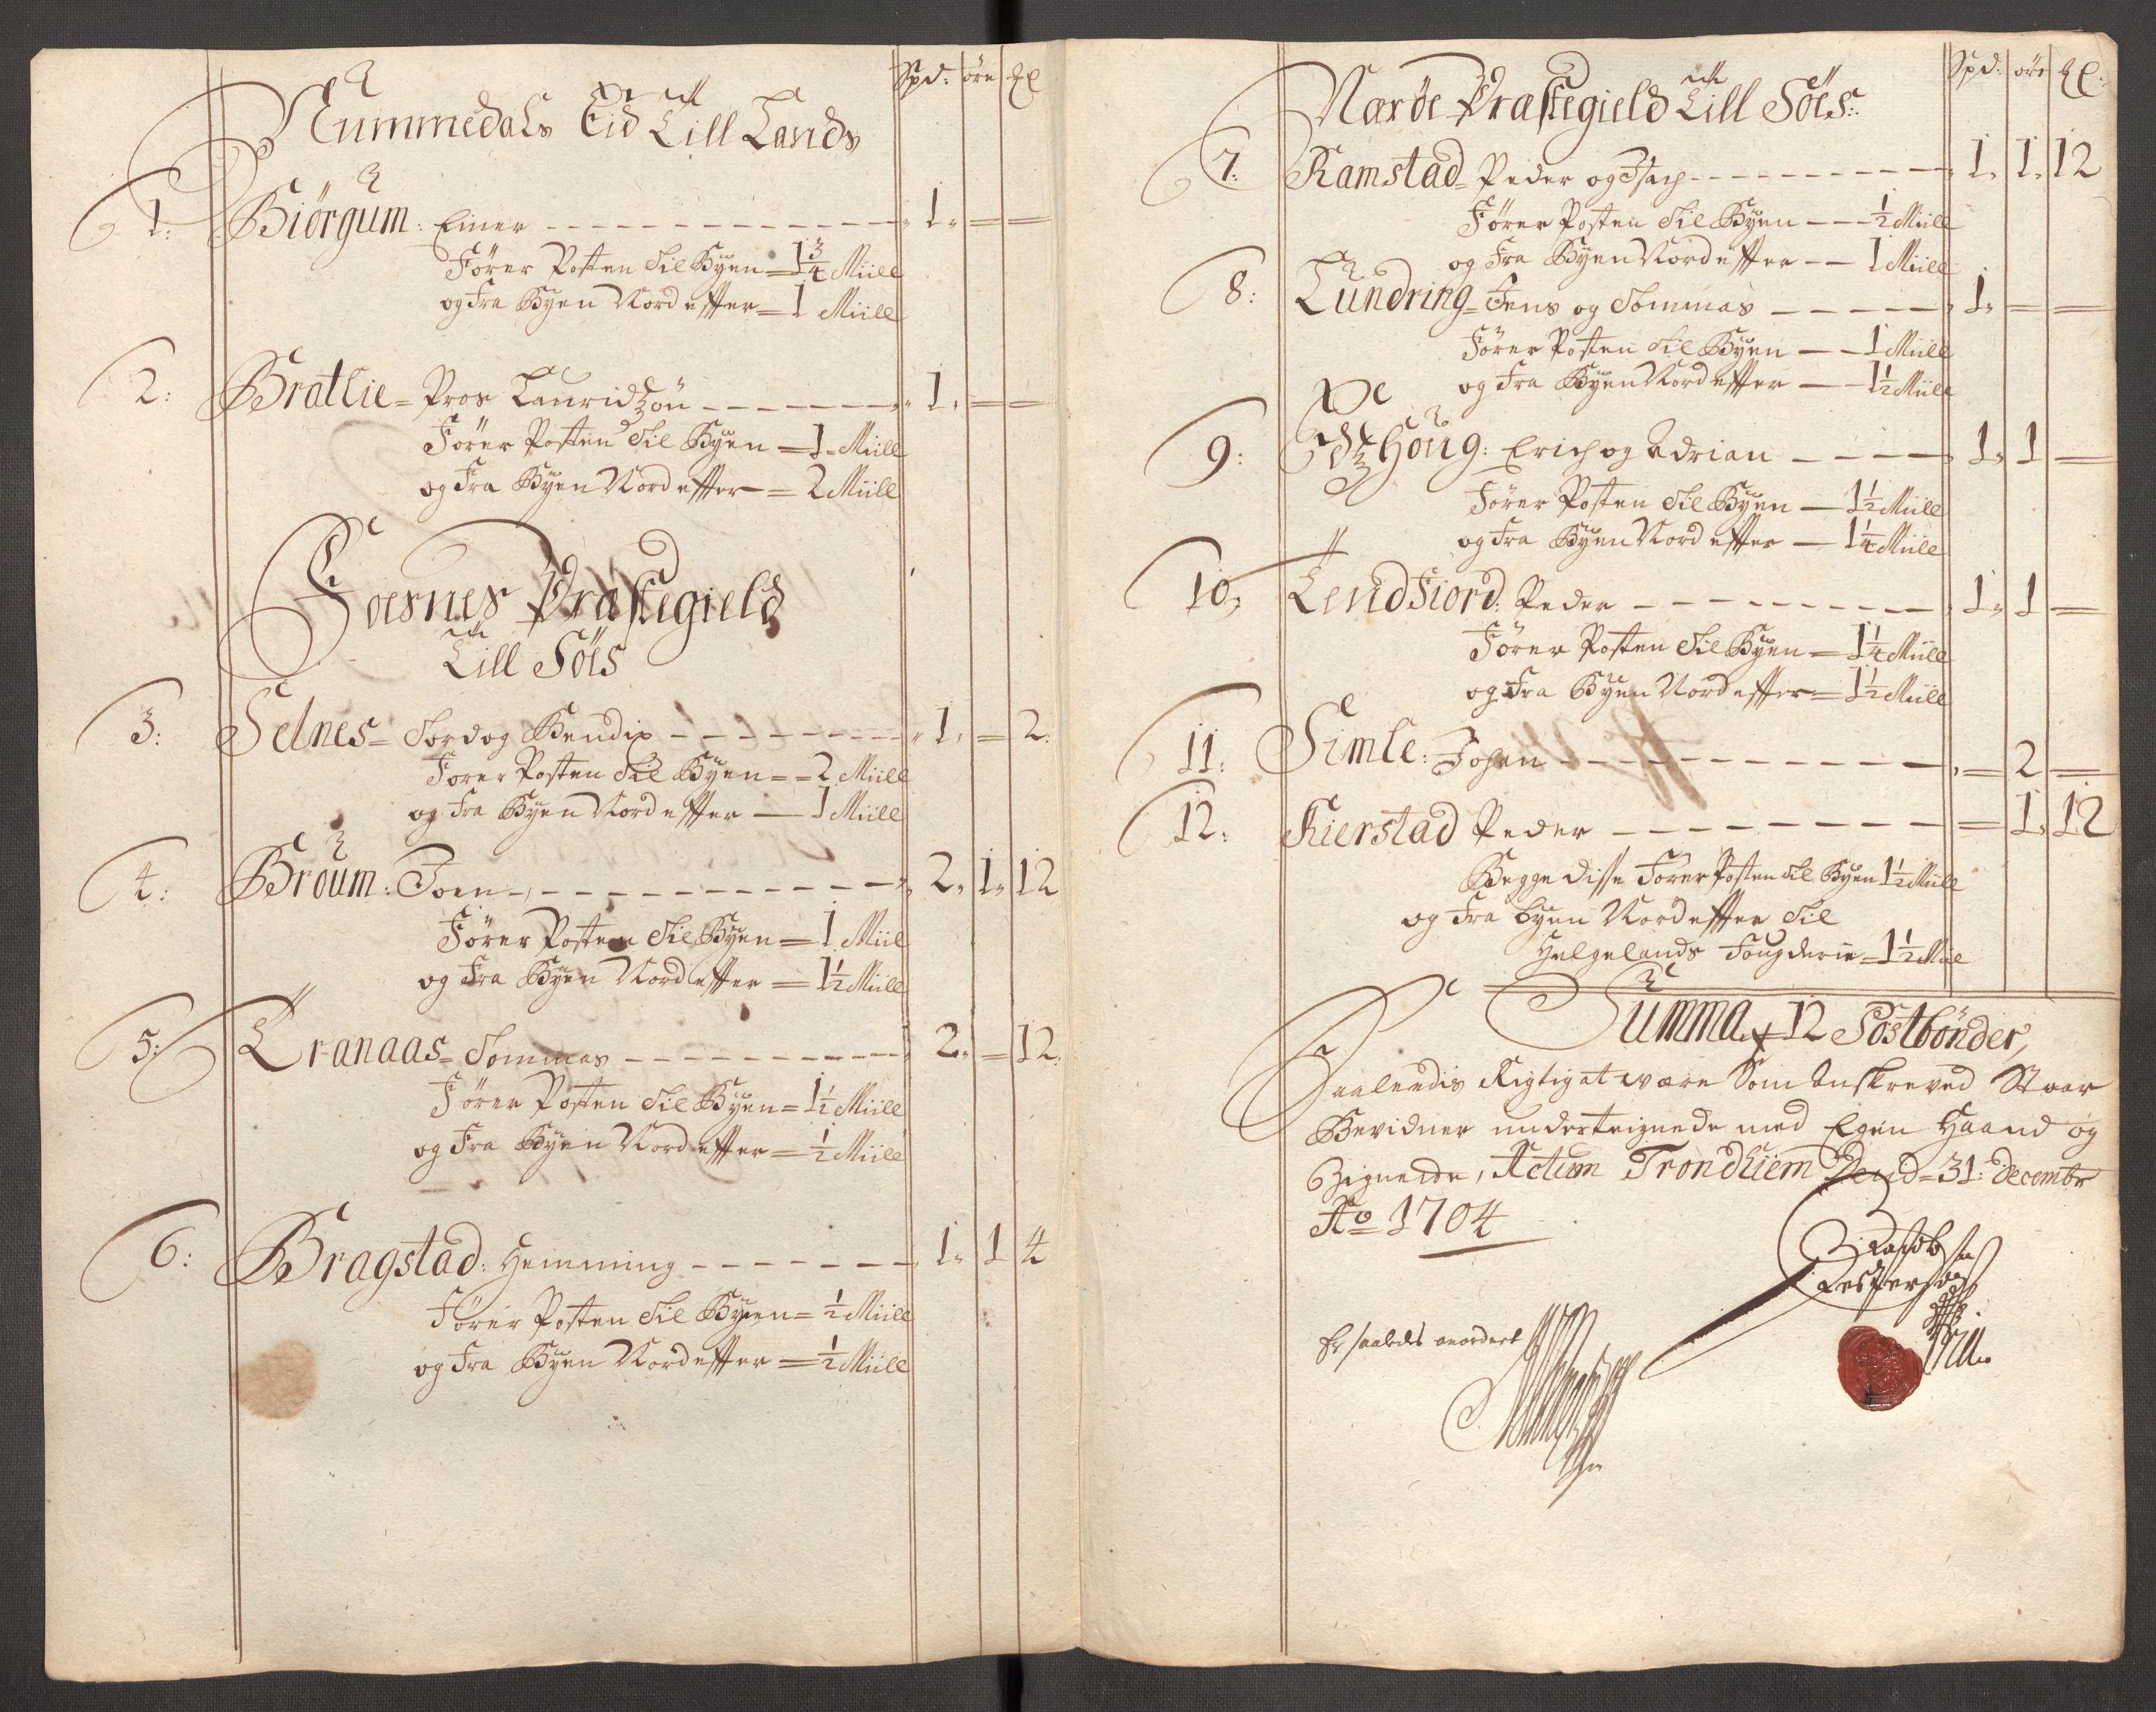 Spd: øre
Nummedals Eid Till Lands
1: Biörgum: Einer - - - 1 = =
Fører Posten til Byen = 1 3/4 Miill
og fra Byen Nord effter = 1 Miill
2: Bratlie = Proe Lauridzön - - - 1 = =
Fører Posten til Byen = 1 Miill
og fra Byen Nord effter = 2 Miill
Foesnes Præstegield
Till Söes
3: Selnes = Tord og Bendix - - - 1 = 2
Fører Posten til Byen = 2 Miill
og fra Byen Nord effter — 1 Miill
4: Broum: Joen - - - 2 1 12
Fører Posten til Byen = 1 Miil
og fra Byen Nord effter = 1 1/2 Miill
5: Tranaas = Tommas - - - 2 = 12
Fører Posten til Byen = 1 1/2 Miill
og fra Byen Nord effter = 1/2 Miill
6: Bragstad: Hemming - - - 1 1 4
Fører Posten til Byen = 1/2 Miill
og fra Byen Nord effter = 1/2 Miill
Spd: øre
Nærøe Præstegield Till Söes:
7: Ramstad = Peder og Isach - - - 1 1 12
Fører Posten til Byen — 1/2 Miill
og fra Byen Nord effter — 1 Miill
8: Lundring = Jens og Tommas - - - 1 = =
Fører Posten til Byen — 1 Miill
og fra Byen Nord effter — 1 1/2 Miill
9: Høug: Erich og Adrian - - - 1 1 =
Fører Posten til Byen — 1 1/2 Miill
og fra Byen Nord effter — 1 1/4 Miill
10: Tendfiord: Peder - - - 1 1 =
Fører Posten til Byen = 1 1/4 Miill
og fra Byen Nord effter = 1 1/2 Miill
11: Simle: Johen - - - = 2 =
12: Kierstad Peder - - - = 1 12
Begge disse Fører Posten til Byen 1 1/2 Miill
og fra byen Nord effter til
Helgelands Fougderie = 1 1/2 Miil
Summa 12 Postbönder,
Saaledis Rigtig at være Som anskreved Staar
Bevidner underteignede med Egen Haand og
Zignette, Actum Trondhiem Dend = 31: decembr
Ao 1704
Jacob
Jespersøn
Er saaledes anordnet